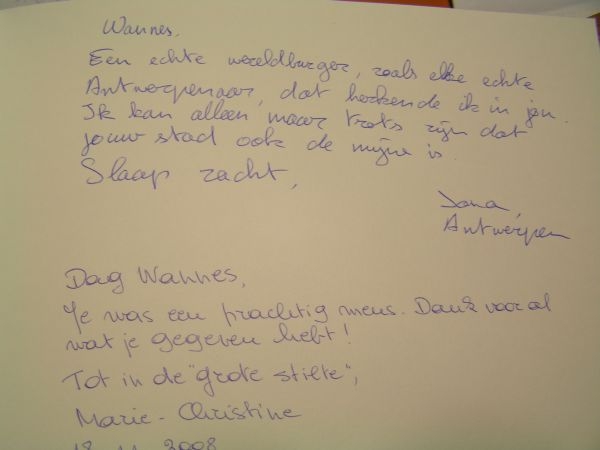 Wannes,
Een echte wereldburger, zoals elke echte
Antwerpenaar, dat herkende ik in jou.
Ik kan alleen maar trots zijn dat
jouw stad ook de mijne is.
Slaap zacht,
Jana,
Antwerpen
Dag Wannes,
Je was een prachtig mens. Dank voor al
wat je gegeven hebt!
Tot in de "grote stilte",
Marie-Christine
2008